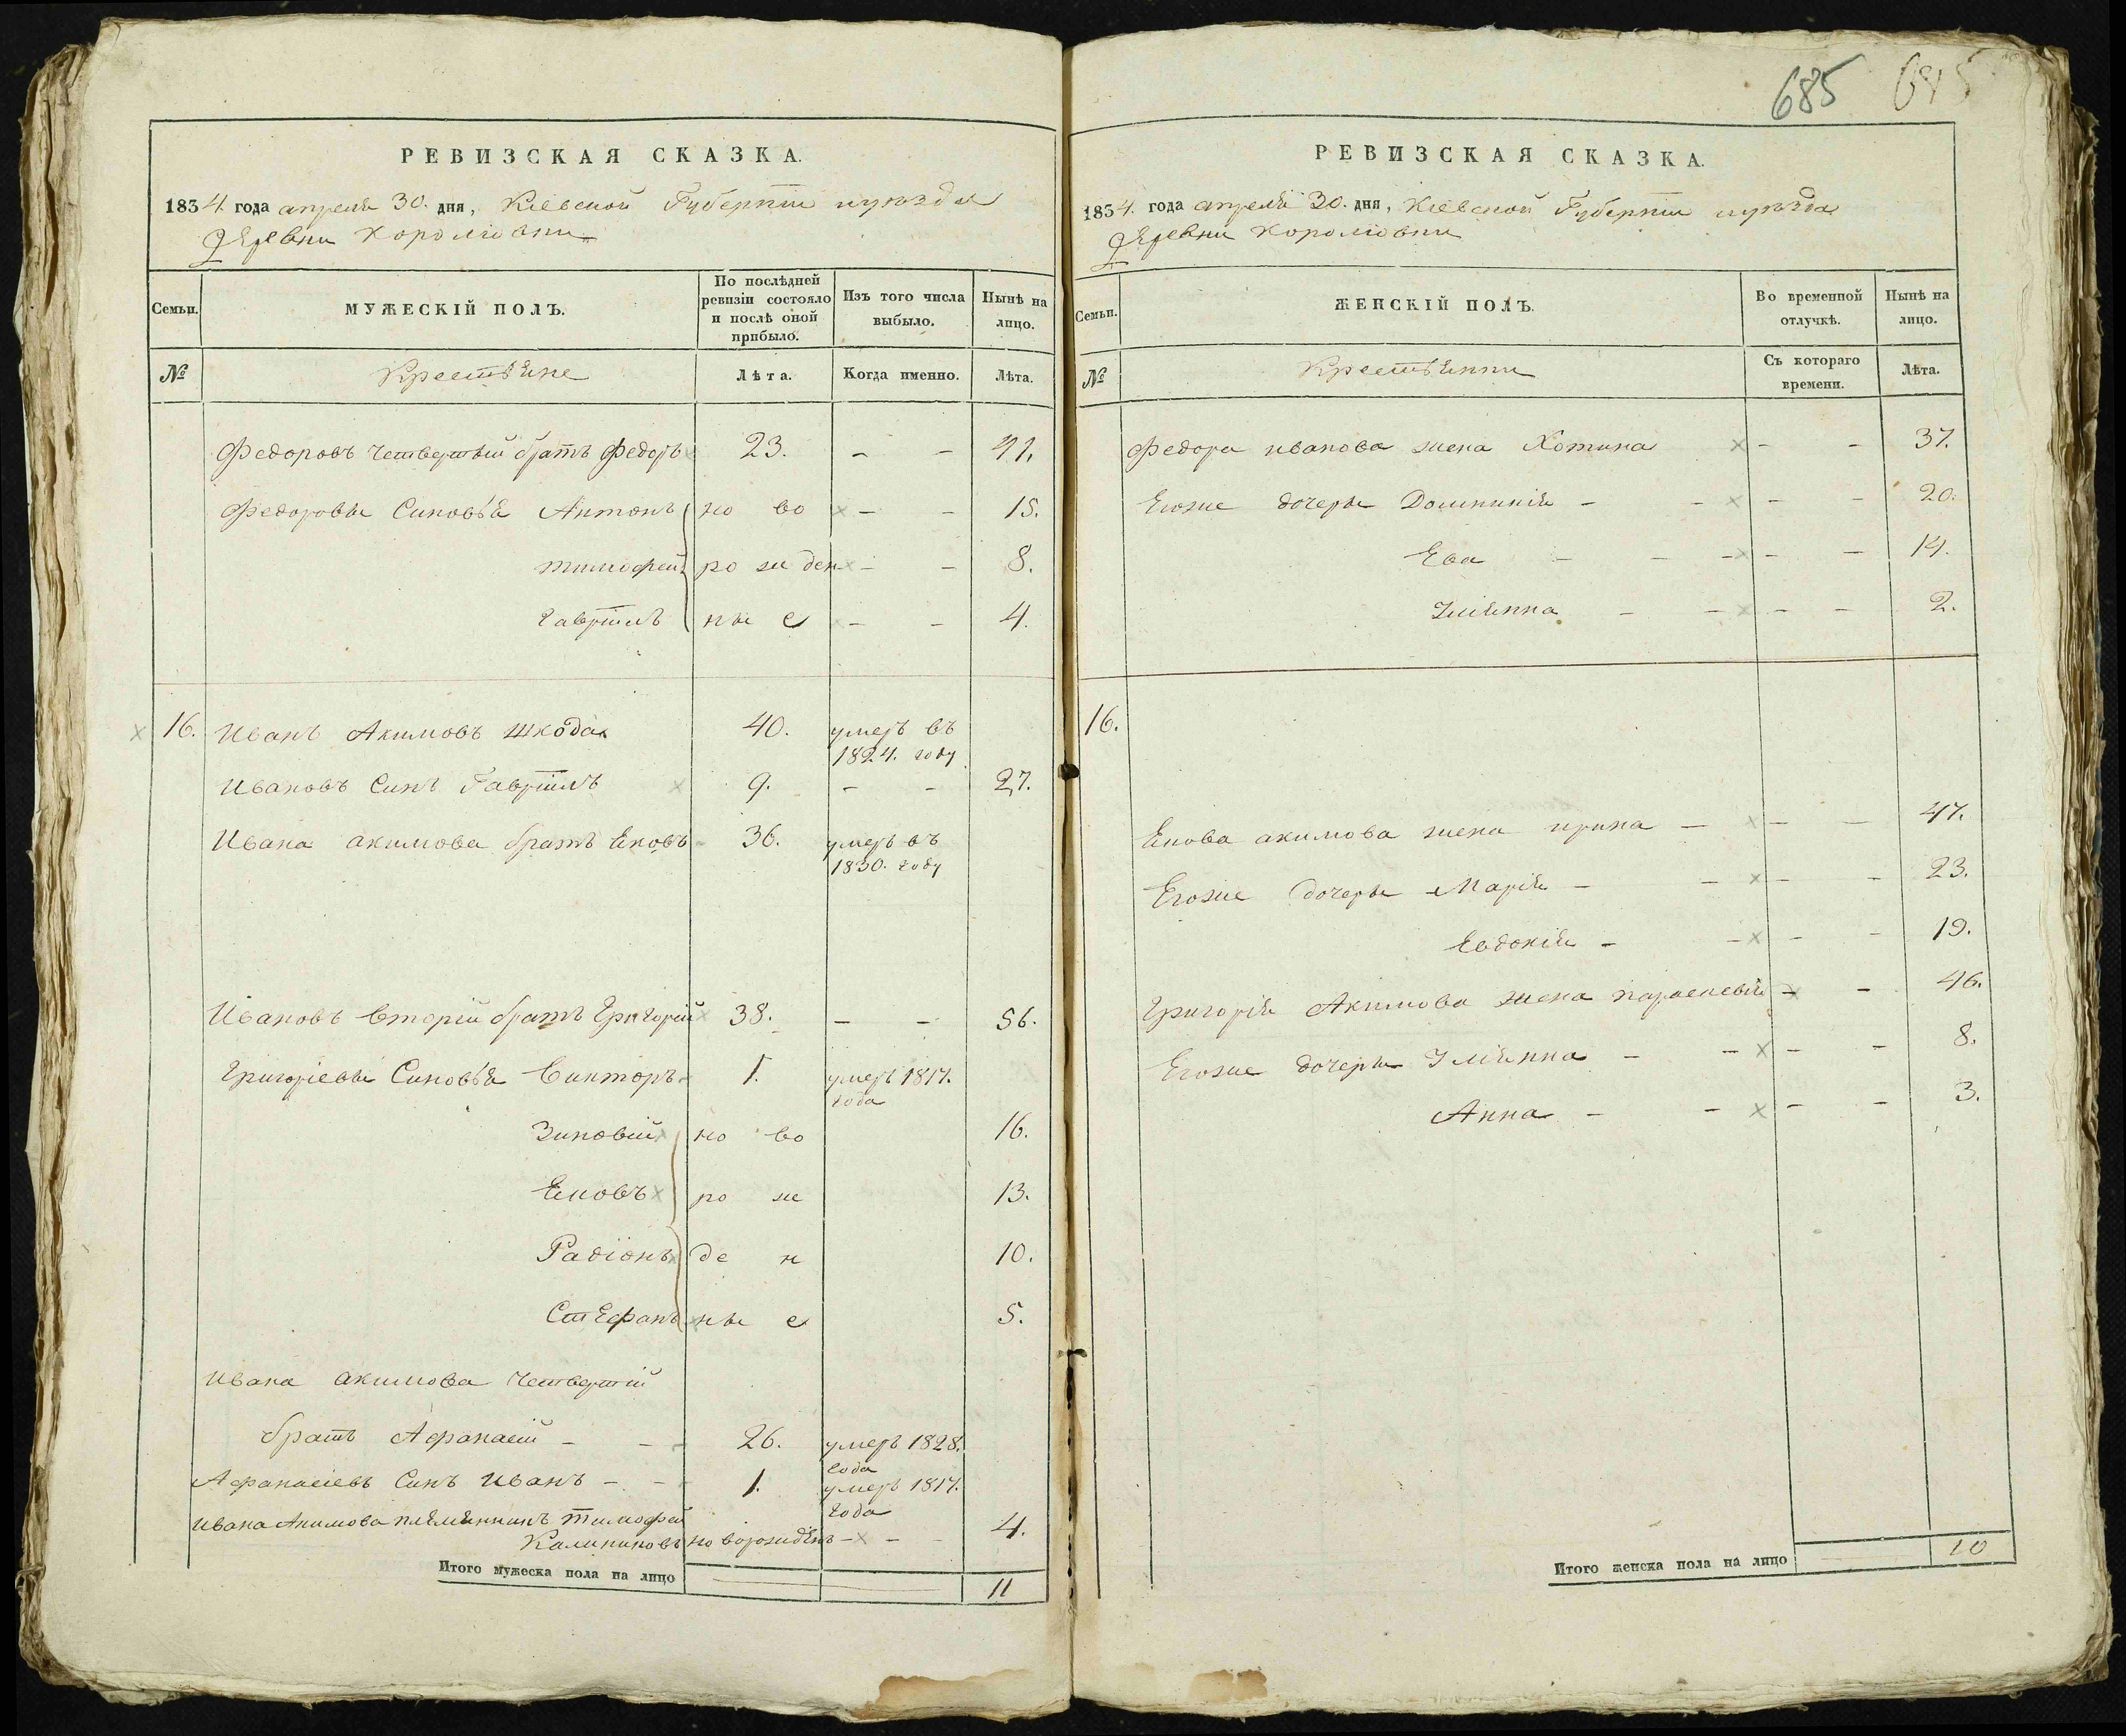 РЕВИЗСКАЯ СКАЗКА.
1834 года апреля 30. дня, Кіевской Губерніи и уезда
деревни Королiовки
Семьи.
МУЖЕСКІЙ ПОЛЪ.
По послѣдней ревизіи состояло и послѣ оной прибыло.
Изъ того числа выбыло.
Нынѣ на лицо.
№
Крестьяне
Лѣта.
Когда именно.
Лѣта.
Федоровъ четвертый братъ Федоръ 23. - - 41.
Федоровы Синовья Антонъ но во - - 15.
тимофей ро ж ден - - 8.
Гавріилъ ны е - - 4.
16. Иванъ Акимовъ Шкода 40. умеръ въ
1824. году
Ивановъ Синъ Гавріилъ 9. - - 27.
Ивана акимова братъ Яковъ 36. умеръ въ
1830. году
Ивановъ вторій братъ Григорій 38. - - 56.
Григоріевы Синовья Викторъ 1. умеръ 1817.
года
Зиновій но во 16.
Яковъ ро ж 13.
Радіонъ де н 10.
Стефанъ ны е 5.
Ивана акимова четвертій
братъ Афанасій - - 26. умеръ 1828.
года
Афанасіевъ Синъ Иванъ - - 1. умеръ 1817.
года
Ивана Акимова племянникъ тимофей
Калиниковъ новорожденъ - - 4.
Итого мужеска пола на лицо 11
685 685
РЕВИЗСКАЯ СКАЗКА.
1834. года апреля 30. дня, Кіевской Губерніи и уезда
деревни Королiовки
Семьи.
ЖЕНСКІЙ ПОЛЪ.
Во временной отлучкѣ.
Нынѣ на лицо.
№
Крестьянки
Съ котораго времени.
Лѣта.
Федора иванова жена Хотина - - 37.
Егоже дочеры Домникія - - - - 20.
Ева - - - - - 14.
Уліянна - - - - 2.
16.
Якова акимова жена ирина - - - 47.
Егоже дочеры Марія - - - - 23.
Евдокія - - - - 19.
Григорія Акимова жена параскевія - - 46.
Егоже дочеры Уліянна - - - - 8.
Анна - - - - 3.
Итого женска пола на лицо 10